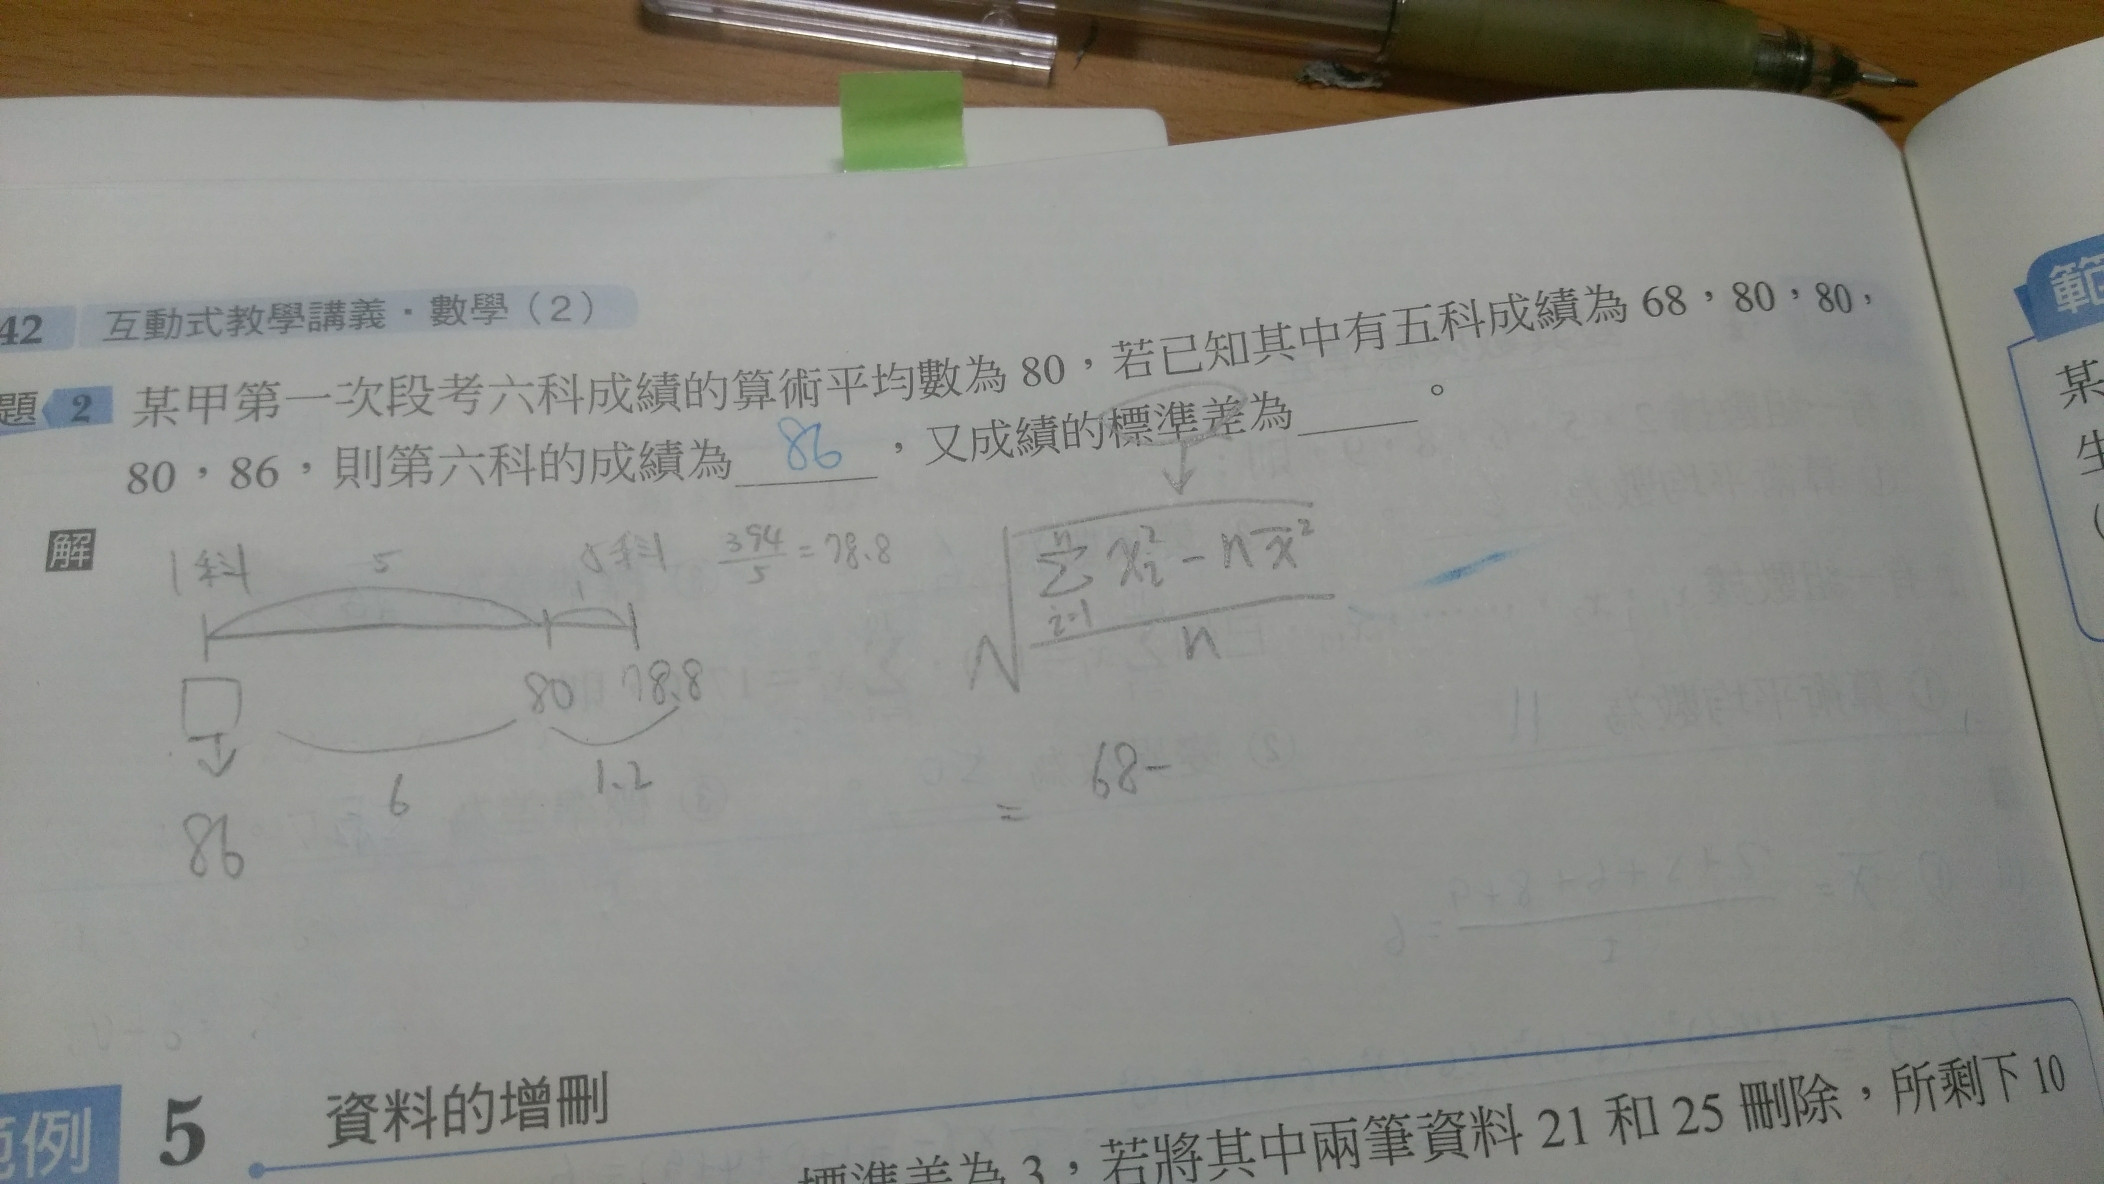 42 互動式教學講義．數學（2）
題 2 某甲第一次段考六科成績的算術平均數為 80，若已知其中有五科成績為 68，80，80，
80，86，則第六科的成績為 86 ，又成績的標準差為 。
解
1科 5 1 5科 394/5 = 78.8
√((n Σ i=1 xᵢ² − nx̄²)/n)
80 78.8
6 1.2
86
= 68−
範例 5 資料的增刪
標準差為 3，若將其中兩筆資料 21 和 25 刪除，所剩下 10
範
某
生
(